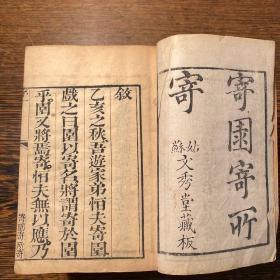 寄園寄所
寄
姑蘇
文秀堂藏板
敘
乙亥之秋吾遊家弟恒夫寄園
戲之曰園以寄名將謂寄於園
乎園又將焉寄恒夫無以應乃